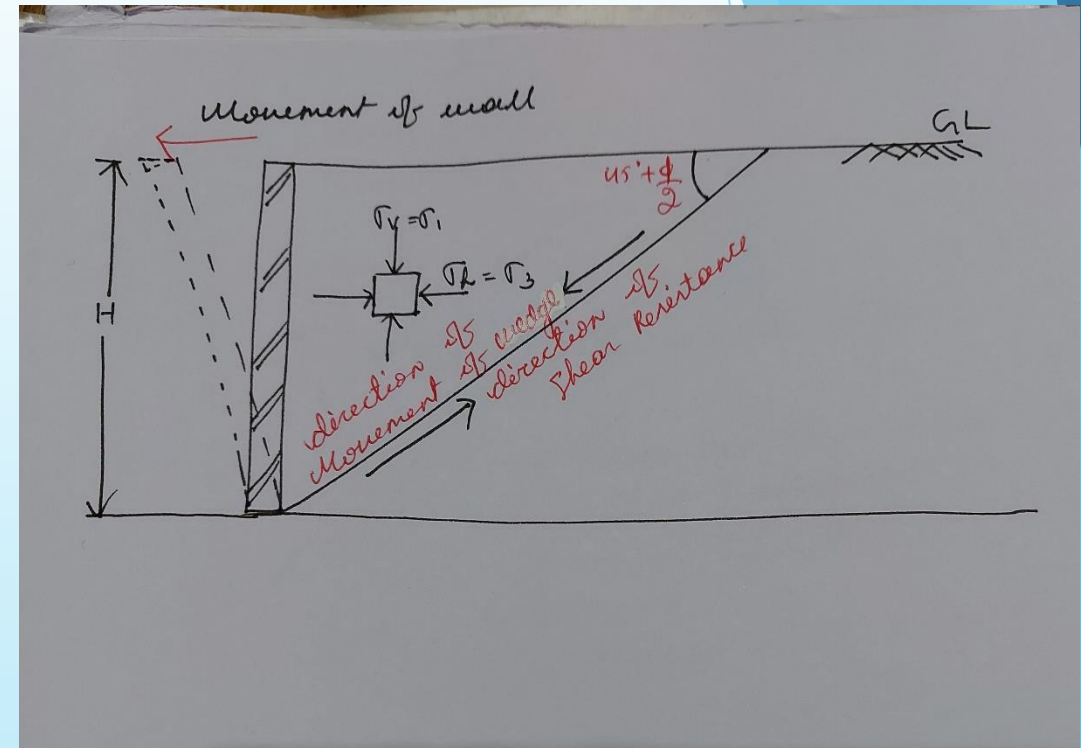 Movement of wall
GL
45°+φ/2
σv = σ1
σh = σ3
H
direction of
Movement of wedge
direction of
Shear Resistance